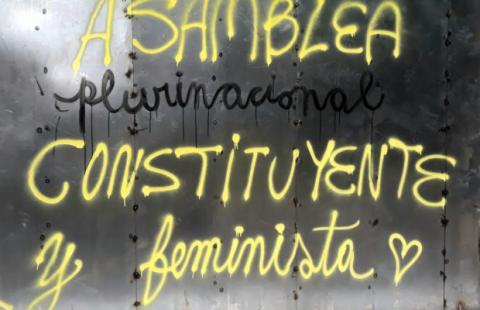 ASAMBLEA
plurinacional
CONSTITUYENTE
y feminista